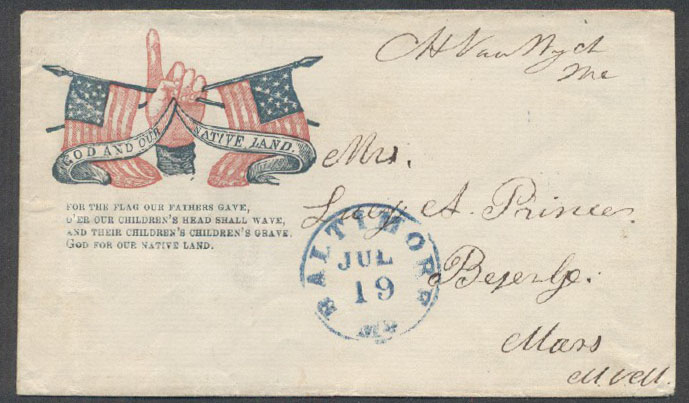 GOD AND OUR NATIVE LAND.
FOR THE FLAG OUR FATHERS GAVE,
O'ER OUR CHILDREN'S HEAD SHALL WAVE,
AND THEIR CHILDREN'S CHILDREN'S GRAVE.
GOD FOR OUR NATIVE LAND.
Mc
Mrs.
Lucy A. Prince.
BALTIMORE
JUL
19
MD
Mass